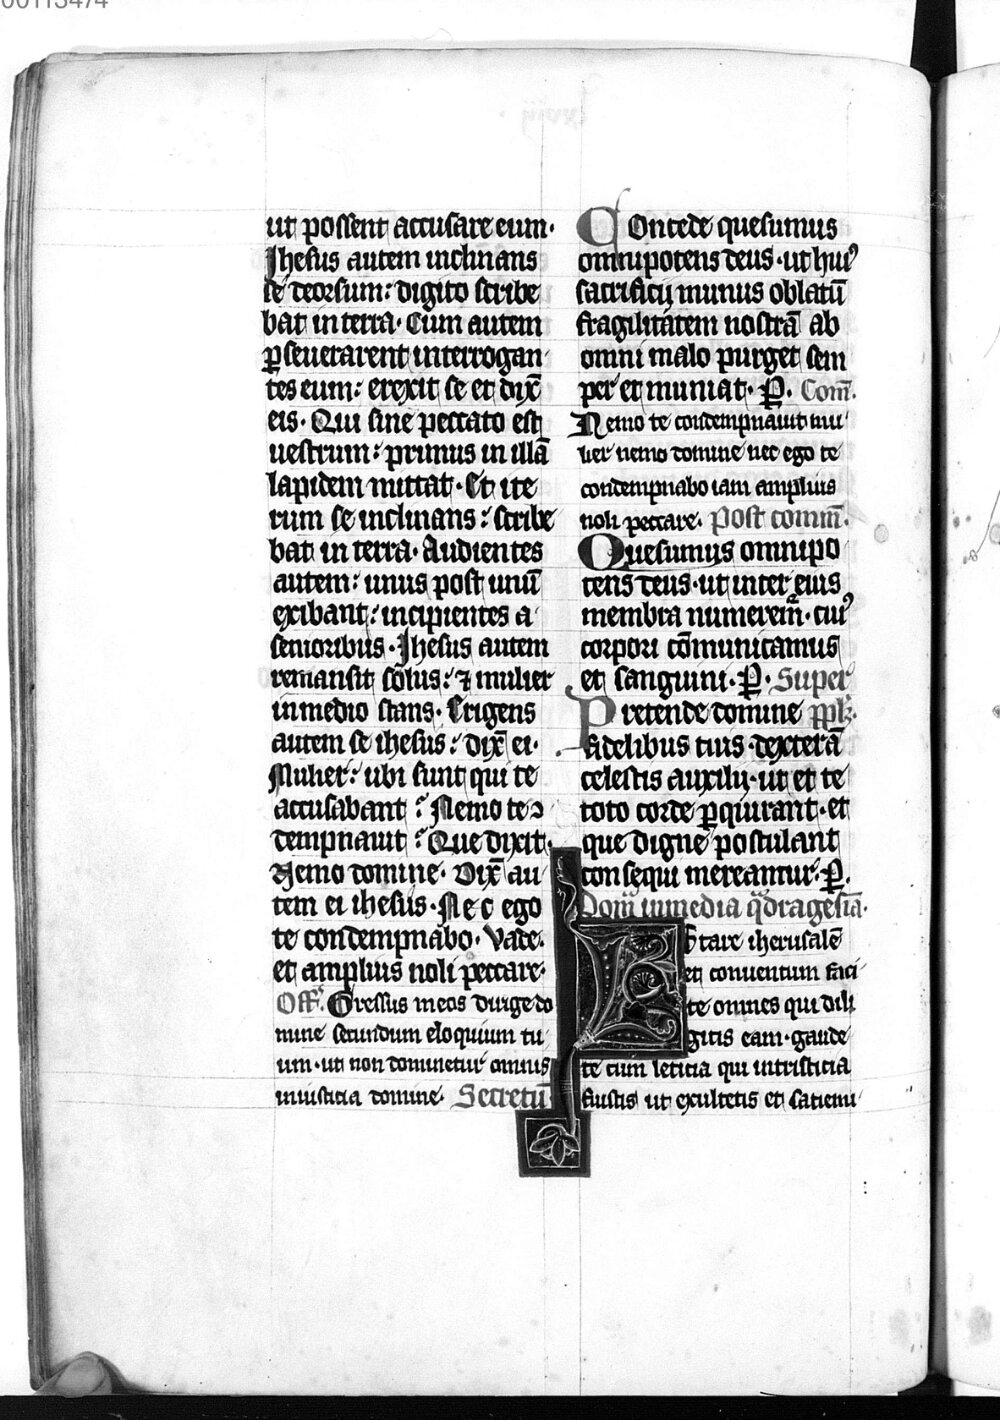 00113474
ut possent accusare eum·
Jhesus autem inclinans
se deorsum: digito scribe
bat in terra· Cum autem
ꝑseuerarent interrogan
tes eum: erexit se et dix̄
eis· Qui sine peccato est
uestrum: primus in illā
lapidem mittat· Et ite
rum se inclinans: scribe
bat in terra· Audientes
autem: unus post unū
exibant: incipientes a
senioribus· Jhesus autem
remansit solus: ⁊ mulier
in medio stans· Erigens
autem se ihesus: dix̄ ei·
Mulier: ubi sunt qui te
accusabant? Nemo te ꝯ
dempnauit? Que dixit·
Nemo domine· Dix̄ au
tem ei ihesus· Nec ego
te condempnabo· Vade·
et amplius noli peccare·
Off̄· Gressus meos dirige do
mine secundum eloquium tu
um· ut non dominetur omnis
iniusticia domine· Secretū
Concede quesumus
omnipotens deus· ut huiꝰ
sacrificij munus oblatū
fragilitatem nostrā ab
omni malo purget sem
per et muniat· P̲· Com̄·
Nemo te condempnauit mu
lier nemo domine nec ego te
condempnabo iam amplius
noli peccare· Post comm̄·
Quesumus omnipo
tens deus· ut inter eius
membra numerem̄· cuiꝰ
corpori cōmunicamus
et sanguini· P̲· Super
Pretende domine pplm̄·
fidelibus tuis· dexterā
celestis auxilij· ut et te
toto corde ꝑquirant· et
que digne postulant
consequi mereantur· P̲·
Dom̄ in media qͣdragesīa·
Letare iherusalē
et conuentum faci
te omnes qui dili
gitis eam· gaude
te cum leticia qui in tristicia
fuistis ut exultetis et saciemi